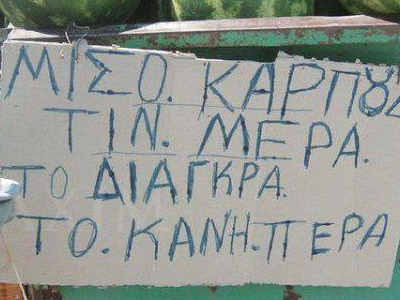 ΜΙΣΟ. ΚΑΡΠΟΥΖ
ΤΙΝ. ΜΕΡΑ.
ΤΟ ΔΙΑΓΚΡΑ.
ΤΟ. ΚΑΝΗ. ΠΕΡΑ